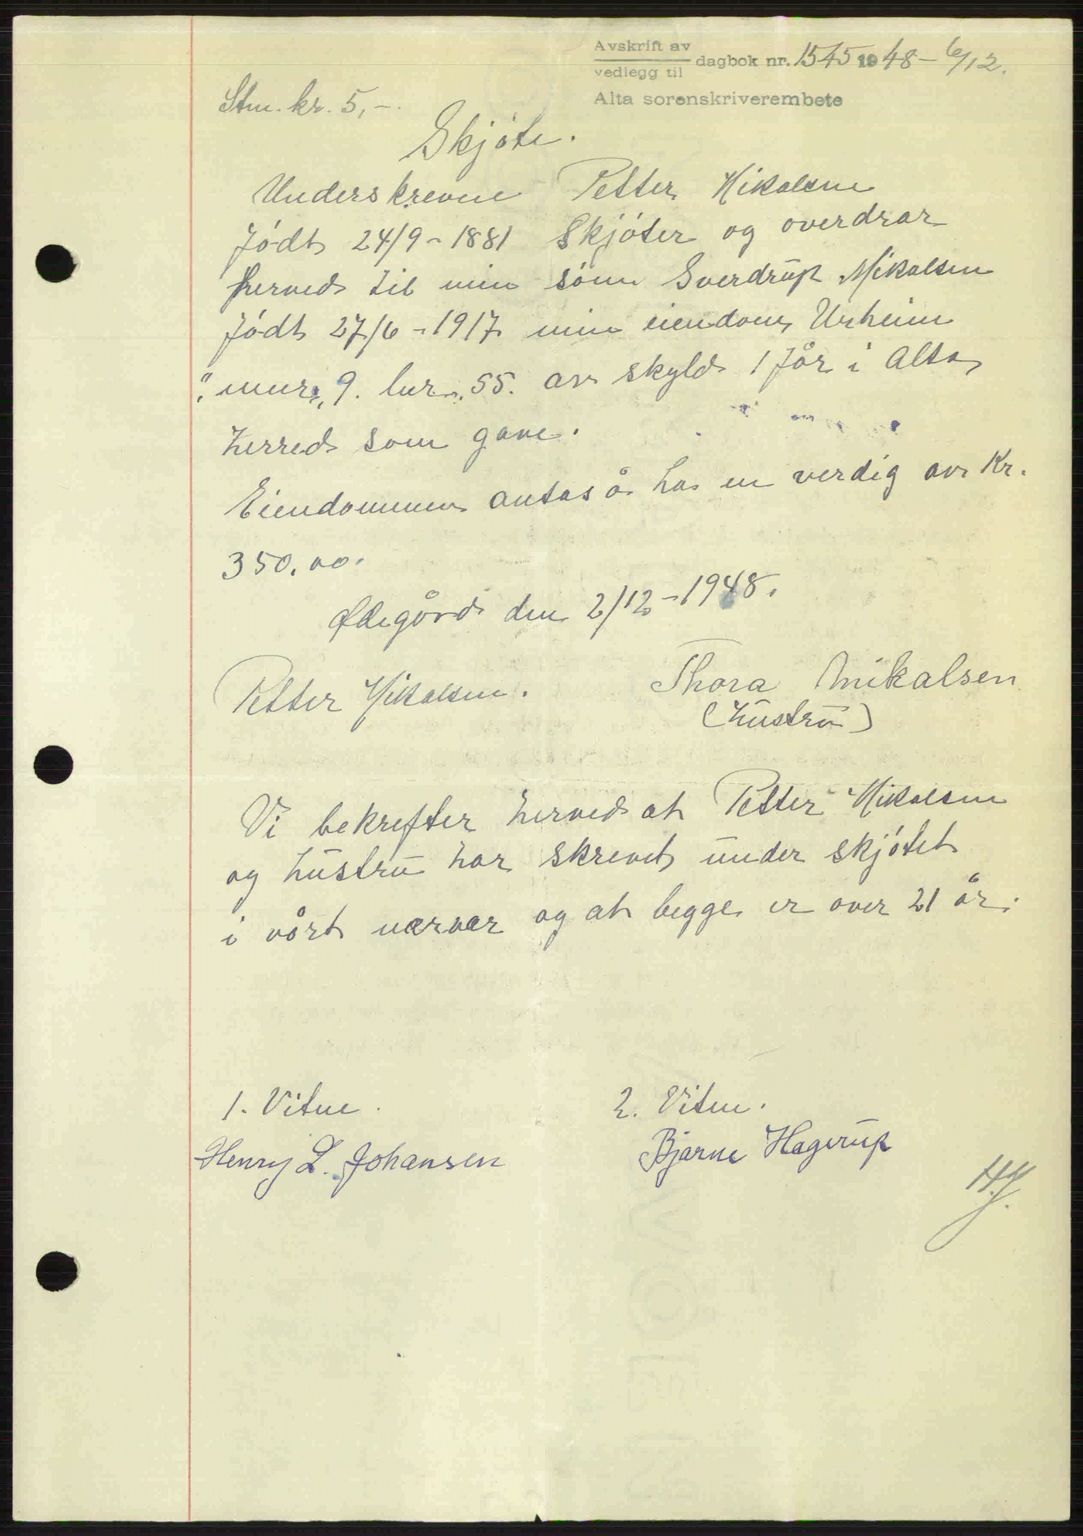 Avskrift av
vedlegg til dagbok nr. 1545 1948 - 6/12.
Alta sorenskriverembete
Stm. kr. 5,-.
Skjøte.
Underskrevne Petter Mikalsen
født 24/9 - 1881 skjøter og overdrar
herved til min sønn Sverdrup Mikalsen
født 27/6 - 1917 min eiendom Urheim
9. 55. av skyld 1 før i Alta
herred som gave.
Eiendommen antas å ha en verdig av Kr.
350.00.
Ødegård den 2/12 - 1948.
Petter Mikalsen. Thora Mikalsen
(hustru)
Vi bekrefter herved at Petter Mikalsen
og hustru har skrevet under skjøtet
i vårt nærvær og at begge er over 21 år.
1. Vitne. 2. Vitne.
Henry L. Johansen Bjarne Hagerup
HJ.